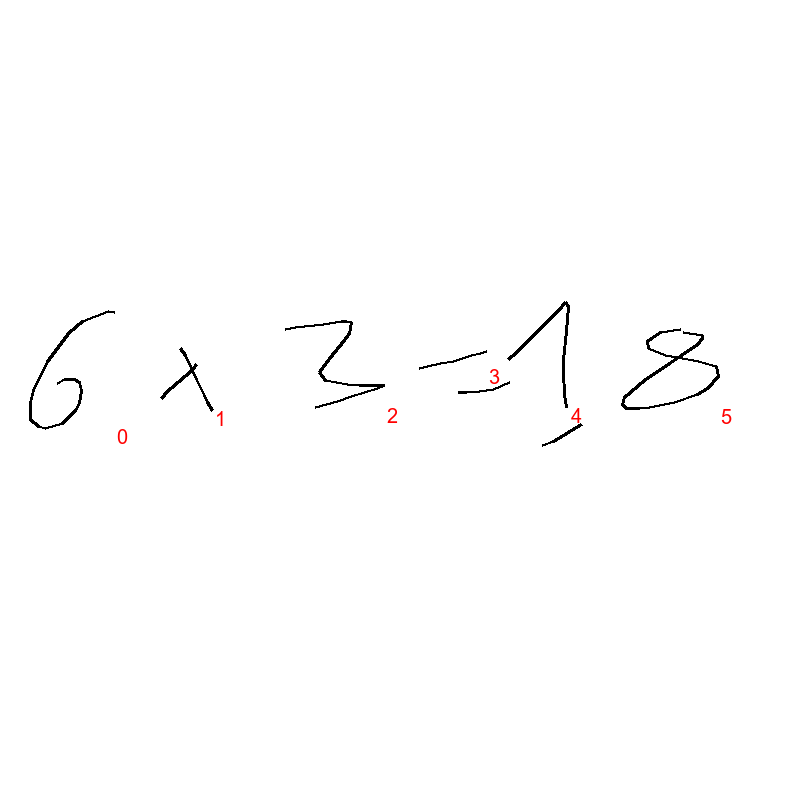 6 x 3 = 18
0 1 2 3 4 5